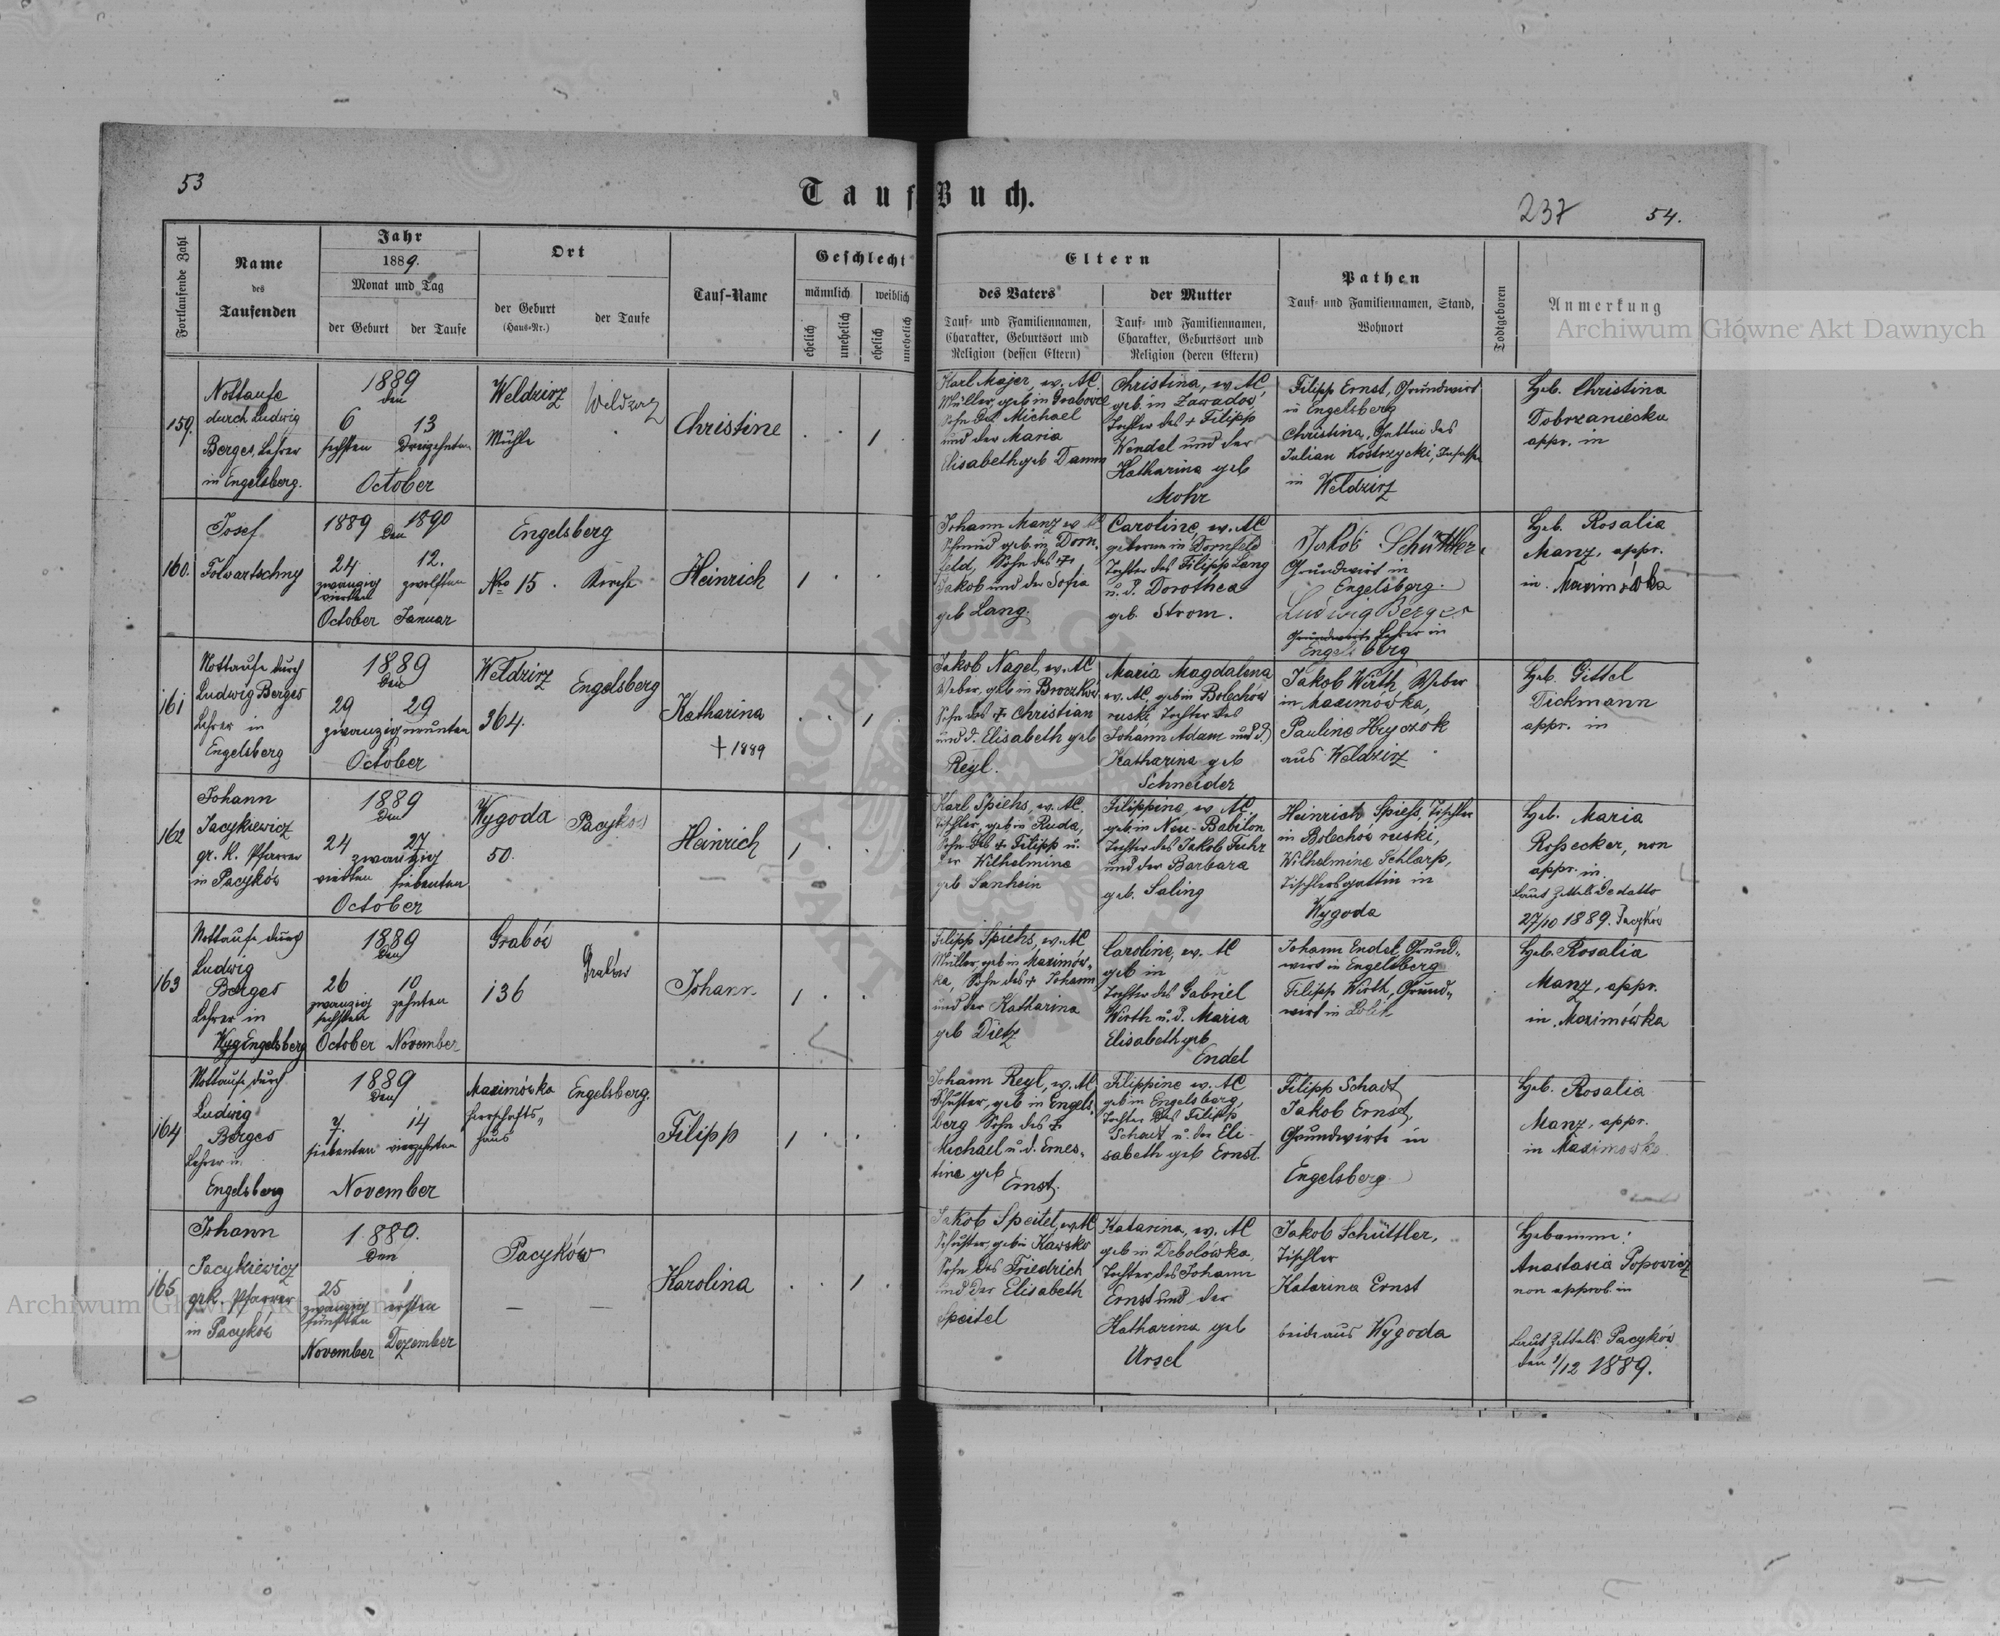 53
Tauf Buch.
237
54.
Fortlaufende Zahl
Name
des
Taufenden
Jahr
1889.
Monat und Tag
der Geburt
der Taufe
Ort
der Geburt
(Haus-Nr.)
der Taufe
Tauf-Name
Geschlecht
männlich
weiblich
ehelich
unehelich
ehelich
unehelich
Eltern
des Vaters
Tauf- und Familiennamen,
Charakter, Geburtsort und
Religion (dessen Eltern)
der Mutter
Tauf- und Familiennamen,
Charakter, Geburtsort und
Religion (deren Eltern)
Pathen
Tauf- und Familiennamen, Stand,
Wohnort
Todtgeboren
Anmerkung
Archiwum Główne Akt Dawnych
159.
Nottaufe
durch Ludwig
Berges, Lehrer
in Engelsberg.
1889
den
6 13
sechsten Dreizehnten
October
Weldzirz
Mühle
Weldzirz
Christine
1
Karl Majer, ev. AC.
Müller, geb in
Sohn des Michael
und der Maria
Elisabeth geb Damm
Christina, ev AC
geb. in Zawadów
Tochter des + Filipp
Wendel und der
Katharina geb
Mohr
Filipp Ernst, Grundwirt
in Engelsberg
Christina, Gattin des
Julian Kostrzycki,
in Weldzirz
Heb. Christina
Dobrzaniecka
appr. in
160.
Josef
Folvartschny
1889 den 1890
24 12.
zwanzig zwölften
vierten
October Januar
Engelsberg
Nro 15. Kirche
Heinrich
1
Johann Manz ev AC
Schmied geb. in Dorn-
feld, Sohn des +
Jakob und der Sofia
geb Lang.
Caroline, ev. AC
geboren in Dornfeld
Tochter des Filipp Lang
u. d. Dorothea
geb. Strom.
Jakob Schüttler
Grundwirt in
Engelsberg.
Ludwig Berges
Grundwirte Lehrer in
Engelsberg
Heb. Rosalia
Manz, appr.
in. Maximówka
161
Nottaufe durch
Ludwig Berges
Lehrer in
Engelsberg
1889
den
29 29
zwanzigneunten
October
Weldzirz
364.
Engelsberg
Katharina
+ 1889
1
Jakob Nagel, ev. AC
Weber, geb in
Sohn des + Christian
und d. Elisabeth geb
Reyl.
Maria Magdalena
ev. AC, geb in Bolechów
ruski, Tochter des
Johann Adam und d.
Katharina geb
Schneider
Jakob Wirth, Weber
in Maximowka,
Pauline Hryczok
aus Weldzirz
Heb. Gittel
Dickmann
appr. in
162
Johann
Jacykiewicz
gr. k. Pfarrer
in Pacyków
1889
den
24 27
zwanzig
vierten siebenten
October
Wygoda
50.
Pacyków
Heinrich
1
Karl Spiehs, ev. AC.
Tischler, geb in Ruda,
Sohn des + Filipp u.
der Wilhelmine
geb
Filippine, ev AC
geb. in Neu-Babilon
Tochter des Jakob Fuhr
und der Barbara
geb. Saling
Heinrich Spiess, Tischler
in Bolechów ruski,
Wilhelmine Schlarp,
Tischlersgattin in
Wygoda
Heb. Maria
Roßecker, non
appr. in
Laut Zettels Dedatto
27/10 1889. Pacyków
163
Nottaufe durch
Ludwig
Berges
Lehrer in
Wyg Engelsberg
1889
den
26 10
zwanzig zehnten
sechsten
October November
Grabów
136
Grabów
Johann
1
Filipp Spiehs, ev. AC
Müller, geb in Maximów-
ka, Sohn des + Johann
und der Katharina
geb Dietz
Caroline, ev. AC
geb in
Tochter des Gabriel
Wirth u. d. Maria
Elisabeth geb
Endel
Johann Endel, Grund-
wirt in Engelsberg
Filipp Wirth, Grund-
wirt in
Heb. Rosalia
Manz, appr.
in Maximówka
164
Nottaufe durch
Ludwig
Berges
Lehrer in
Engelsberg
1889
den
7. 14
siebenten vierzehnten
November
Maximówka
Herrschafts-
haus
Engelsberg.
Filipp
1
Johann Reyl, ev. AC
Schuster, geb in Engels-
berg Sohn des +
Michael u. d. Ernes-
tine geb
Ernst.
Filippine ev. AC
geb in Engelsberg,
Tochter des Filipp
Schadt u. der Eli-
sabeth geb Ernst
Filipp Schadt,
Jakob Ernst,
Grundwirte in
Engelsberg.
Heb. Rosalia
Manz, appr.
in Maximowka
165
Johann
Jacykiewicz
grk. Pfarrer
in Pacyków
1889.
den
25 1
zwanzig ersten
fünften
November Dezember
Pacyków
Karolina
1
Jakob Speitel, ev AC
Schuster, geb in Kawsko
Sohn des Friedrich
und der Elisabeth
Speitel
Katarina, ev. AC
geb in Debolówka,
Tochter des Johann
Ernst und der
Katharina geb
Ursel
Jakob Schüttler,
Tischler
Katarina Ernst
beide aus Wygoda
Hebamme:
Anastasia Popowicz
non approb. in
Laut Zettels: Pacyków
den 1/12 1889.